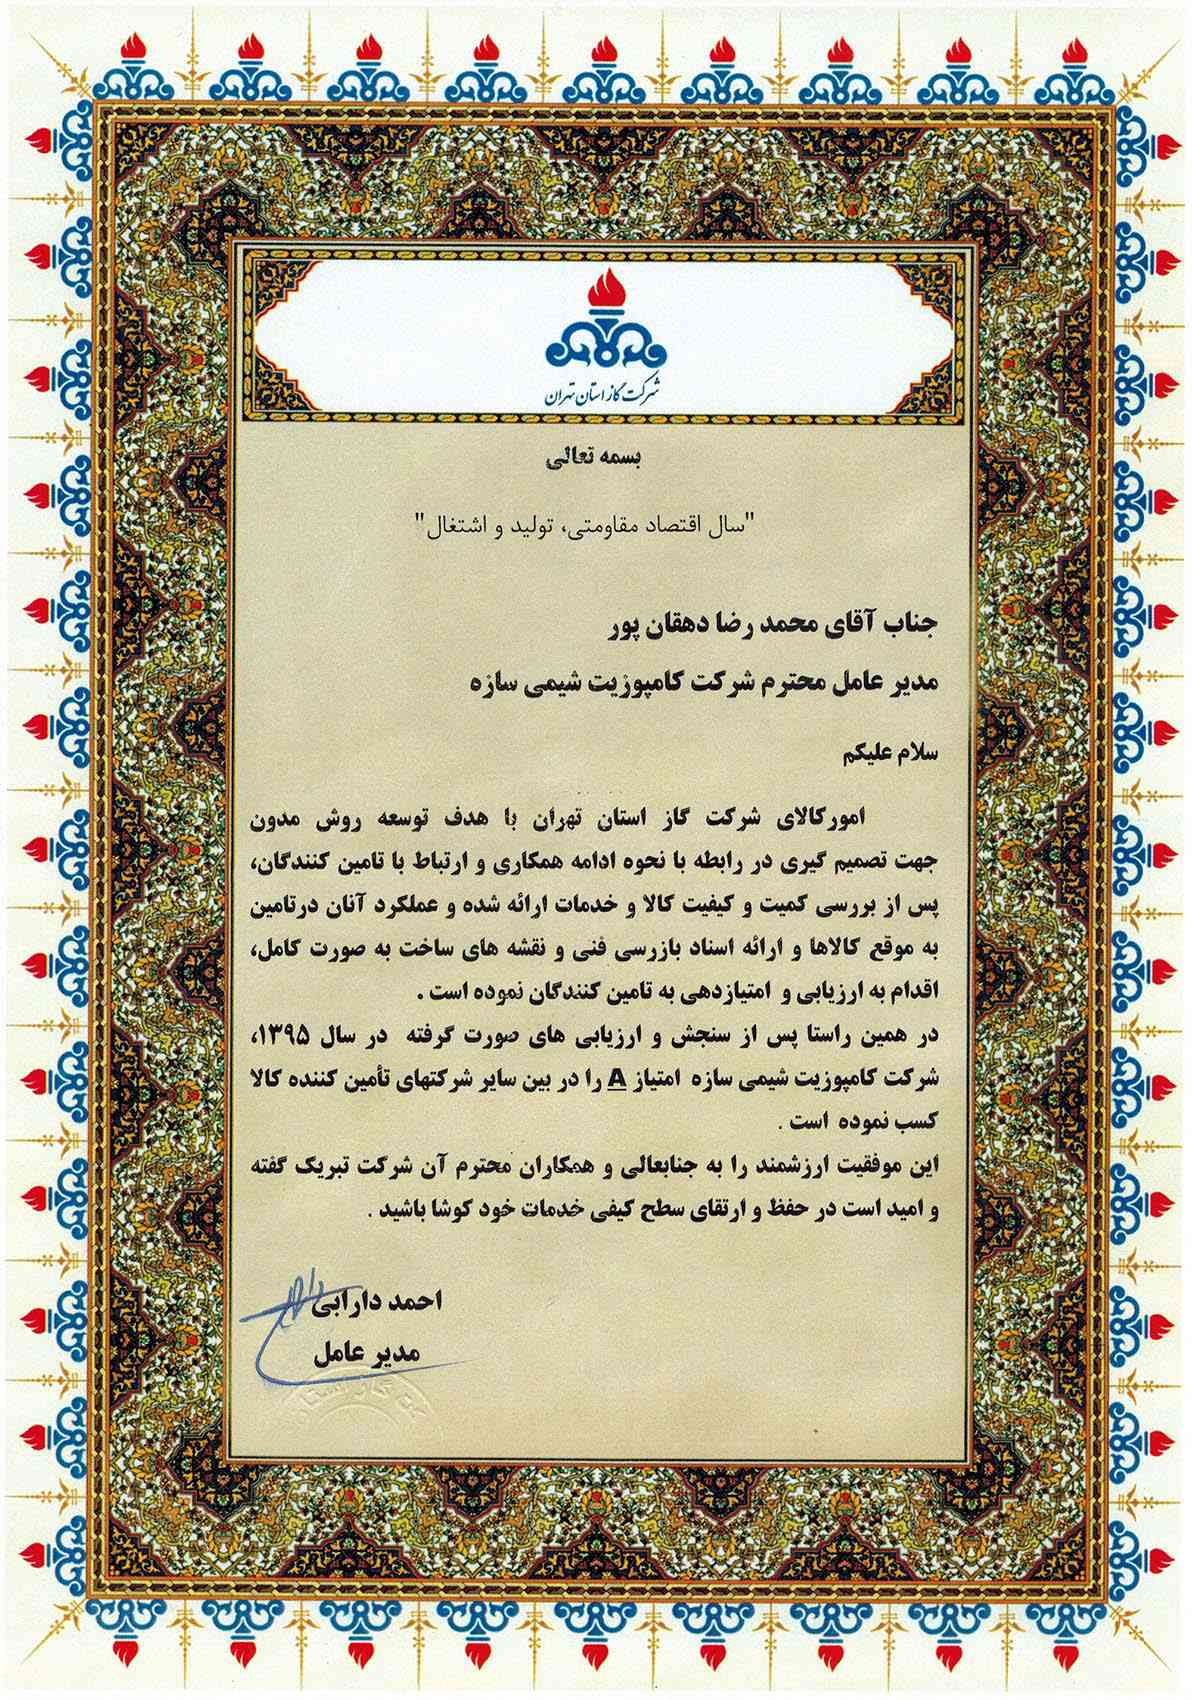 شرکت گاز استان تهران
بسمه تعالی
"سال اقتصاد مقاومتی، تولید و اشتغال"
جناب آقای محمد رضا دهقان پور
مدیر عامل محترم شرکت کامپوزیت شیمی سازه
سلام علیکم
امورکالای شرکت گاز استان تهران با هدف توسعه روش مدون
جهت تصمیم گیری در رابطه با نحوه ادامه همکاری و ارتباط با تامین کنندگان،
پس از بررسی کمیت و کیفیت کالا و خدمات ارائه شده و عملکرد آنان درتامین
به موقع کالاها و ارائه اسناد بازرسی فنی و نقشه های ساخت به صورت کامل،
اقدام به ارزیابی و امتیازدهی به تامین کنندگان نموده است .
در همین راستا پس از سنجش و ارزیابی های صورت گرفته در سال ۱۳۹۵،
شرکت کامپوزیت شیمی سازه امتیاز A را در بین سایر شرکتهای تأمین کننده کالا
کسب نموده است .
این موفقیت ارزشمند را به جنابعالی و همکاران محترم آن شرکت تبریک گفته
و امید است در حفظ و ارتقای سطح کیفی خدمات خود کوشا باشید .
احمد دارابی
مدیر عامل